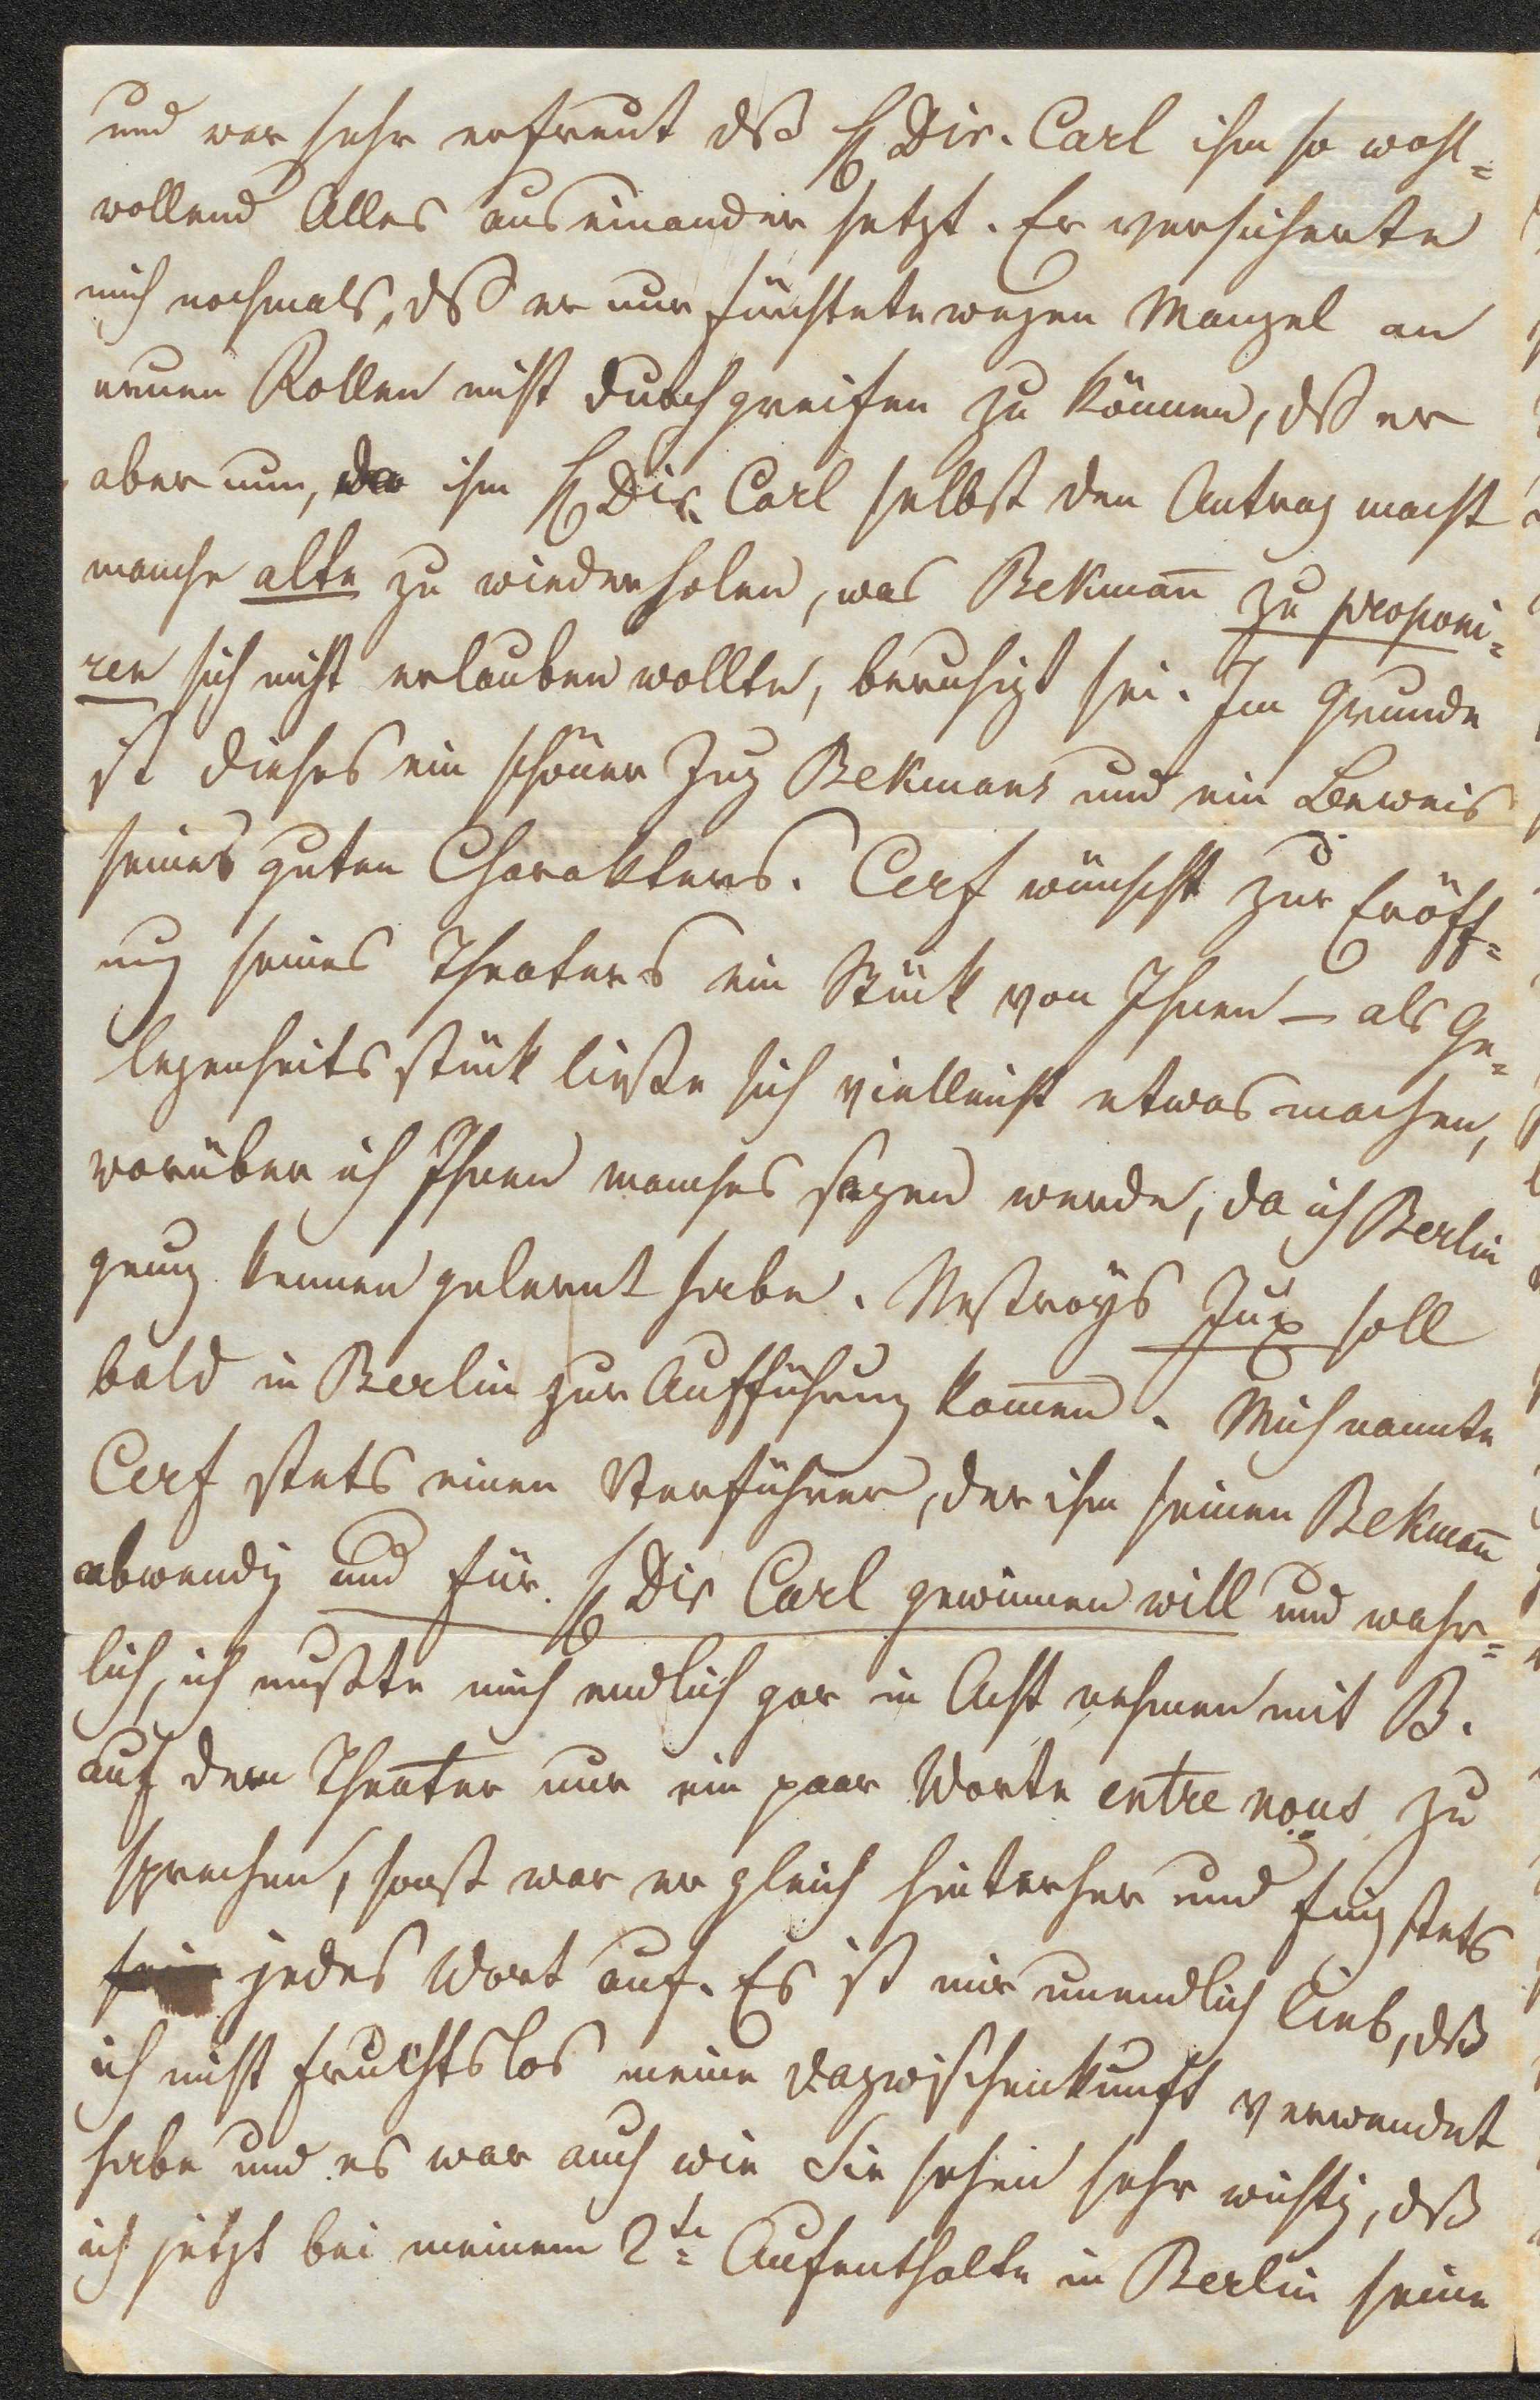 und war sehr erfreut dß H Dir. Carl ihm so wohl=
wollend Alles auseinander setzt. Er versicherte
mich nochmals, dß er nur fürchtete wegen Mangel an
neuen Rollen nicht durchgreifen zu können, dß er
aber nun, da ihm H Dir. Carl selbst den Antrag macht
manche alte zu wiederholen, was Bekman̄ zu proponi=
ren sich nicht erlauben wollte, beruhigt sei. Im Grunde
ist dieses ein schöner Zug Bekmans und ein Beweis
seines guten Charakters. Cerf wünscht zur Eröff=
nug seines Theaters ein Stück von Ihnen – als Ge=
legenheitsstück ließe sich vielleicht etwas machen,
worüber ich Ihnen manches sagen werde, da ich Berlin
genug kennen gelernt habe. Nestroÿs Jux soll
bald in Berlin zur Aufführung kom̄en. Mich nannte
Cerf stets einen Verführer, der ihm seinen Bekman̄
abwendig und für H Dir Carl gewinnen will und wahr=
lich, ich mußte mich endlich gar in Acht nehmen mit B.
auf dem Theater nur ein paar Worte entre nous zu
sprechen, sonst war er gleich hinterher und fing stets
jedes Wort auf. Es ist mir unendlich lieb, dß
ich nicht fruchtslos meine Dazwischenkunft verwendet
habe und es war auch wie Sie sehen sehr wichtig, dß
ich jetzt bei meinem 2te Aufenthalte in Berlin seine